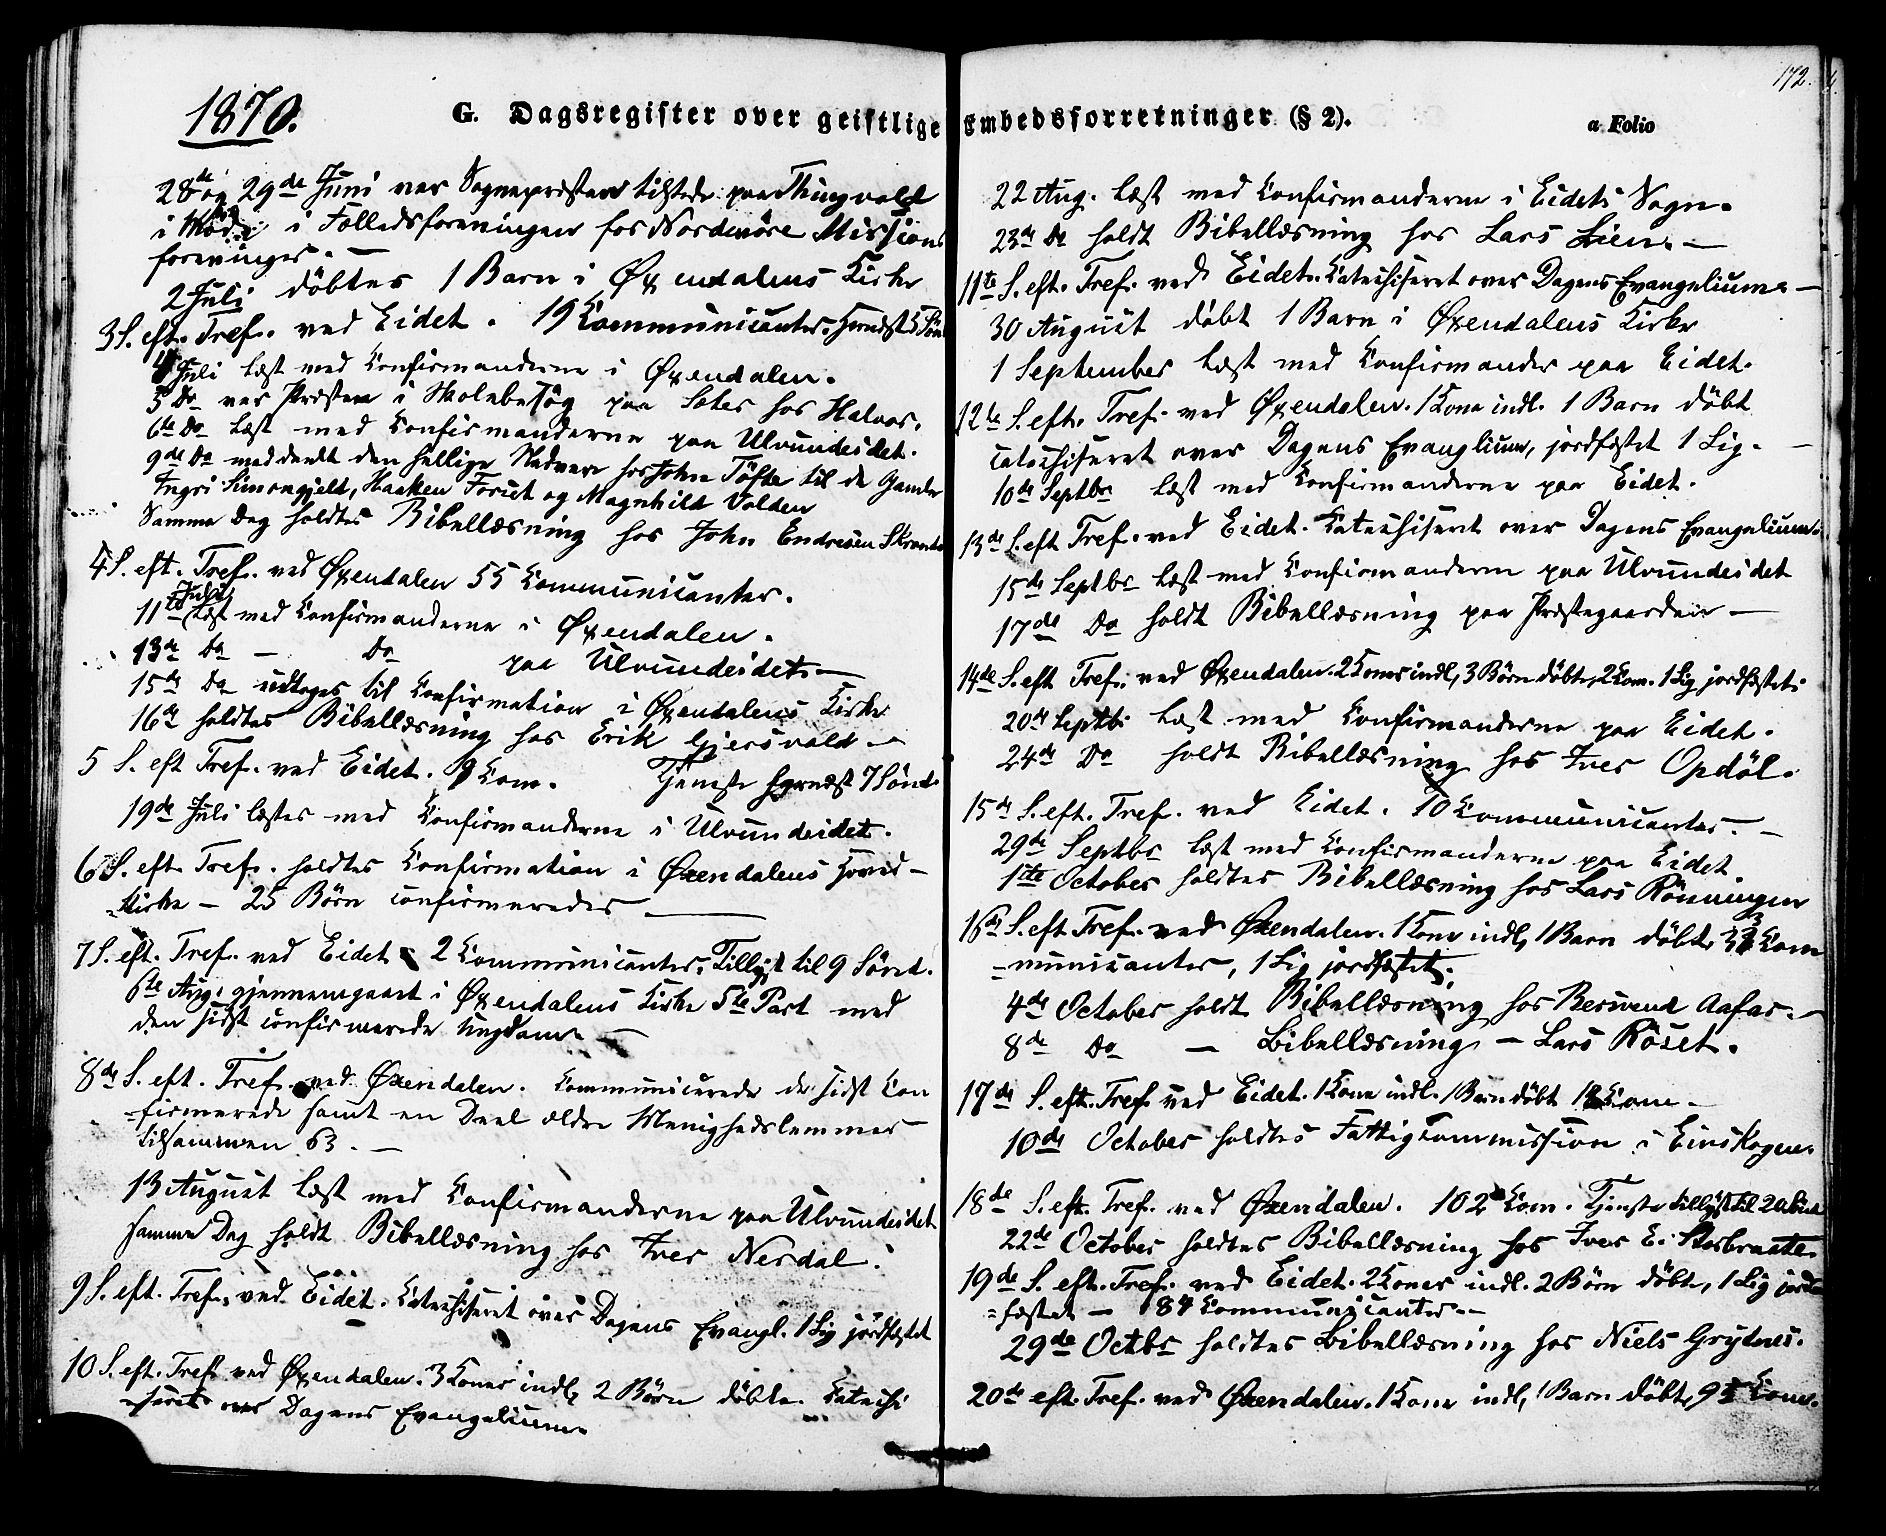 1870.
G. Dagsregister over geistlige Embedsforretninger (§ 2).
a Folio
172.
28de og 29de Juni var Sognepræsten tilstede paa Thingvold
i Møde i Fælledsforeningen for Nordmøre Missions
foreninger. —
2 Juli döbtes 1 Barn i Øxendalens Kirke
3 S. eft. Tref. ved Eidet. 19 Communicanter.
4 Juli læst med Confirmanderne i Øxendalen.
5 Do var Præsten i Skolebesög paa hos Halvor.
6te Do læst med Confirmanderne paa Ulvundeidet.
9de Do meddeelt den hellige Nadvere hos John Töfte til de Gamle
Ingri Simonsgjelt, Haaken Forset og Magnhild Volden
Samme Dag holdtes Bibellæsning hos John Endresen
4 S. eft. Tref. ved Øxendalen 55 Communicanter.
11te Juli læst med Confirmanderne i Øxendalen.
13de Do — Do paa Ulvundeidet —
15de Do udtoges til Confirmation i Øxendalens Kirke
16de holdtes Bibellæsning hos Erik Gjersvold —
5 S. eft Tref. ved Eidet. 9 Com. Tjeneste 7 Sönd.
19de Juli læstes med Confirmanderne i Ulvundeidet.
6 S. eft. Tref. holdtes Confirmation i Øxendalens Hoved-
Kirke — 25 Börn confirmeredes —
7 S. eft. Tref. ved Eidet 2 Communicanter. Tillyst til 9 Sönd.
6te Aug. gjennemgaaet i Øxendalens Kirke 5te Part med
den sidst confirmerede Ungdom —
8de S. eft. Tref. ved Øxendalen. Communicerede de sidst Con
-firmerede samt en Deel ældre Menighedslemmer
tilsammen 63. —
13 August læst med Confirmanderne paa Ulvundeidet
samme Dag holdt Bibellæsning hos Iver Nerdal.
9 S. eft. Tref. ved Eidet. Catechiseret over Dagens Evangl. 1 Lig jordfæstet
10 S. eft. Tref ved Øxendalen. 3 Koner indl, 2 Börn döbte. Catechi
-seret over Dagens Evangelium.
22 Aug. læst med Confirmanderne i Eidets Sogn.
23de Do holdt Bibellæsning hos Lars Lien. —
11te S. eft. Tref. ved Eidet. Catechiseret over Dagens Evangelium. —
30 August döbt 1 Barn i Øxendalens Kirke
1 September læst med Confirmander paa Eidet.
12te S. eft. Tref. ved Øxendalen. 1 Kone indl. 1 Barn döbt
catechiseret over Dagens Evanglium, jordfæstet 1 Lig. —
10de Septbr læst med Confirmanderne paa Eidet.
13de S. eft Tref. ved Eidet. Catechiseret over Dagens Evangelium.
15de Septbr læst med Confirmanderne paa Ulvundeidet
17de Do holdt Bibellæsning paa Præstegaarden —
14de S. eft Tref. ved Øxendalen. 2 Koner indl, 3 Börn döbte, 2 Com. 1 Lig jordfæstet.
20de Septb. læst med Confirmanderne paa Eidet.
24de Do holdt Bibellæsning hos Iver Opdöl.
15de S. eft. Tref. ved Eidet. 10 Communicanter. —
29de Septbr læst med Confirmanderne paa Eidet
1ste October holdtes Bibellæsning hos Lars Rönningen
16de S. eft Tref. ved Øxendalen. 1 Kone indl, 1 Barn döbt, Com
-municanter, 1 Lig jordfæstet.
4de October holdt Bibellæsning hos —
8de Do — Bibellæsning — Lars Röset.
17de S. eft. Tref ved Eidet. 1 Kone indl. 1 Barn döbt 18 Com —
10de October holdtes Fattigcommission i Einskogen.
18de S. eft. Tref. ved Øxendalen. 102 Com. Tjeneste tillyst til 20
22de October holdtes Bibellæsning hos Iver E. Storbraate.
19de S. eft. Tref. ved Eidet. 2 Koner indl. 2 Börn döbte, 1 Lig jord
=fæstet — 84 Communicanter. —
29de Octbr holdtes Bibellæsning hos Niels Grytnes.
20de eft. Tref. ved Øxendalen. 1 Kone indl, 1 Barn döbt, Com.